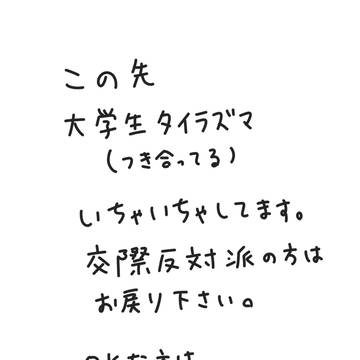 この先
大学生タイラズマ
(つき合ってる)
いちゃいちゃしてます。
交際反対派の方は
お戻り下さい。